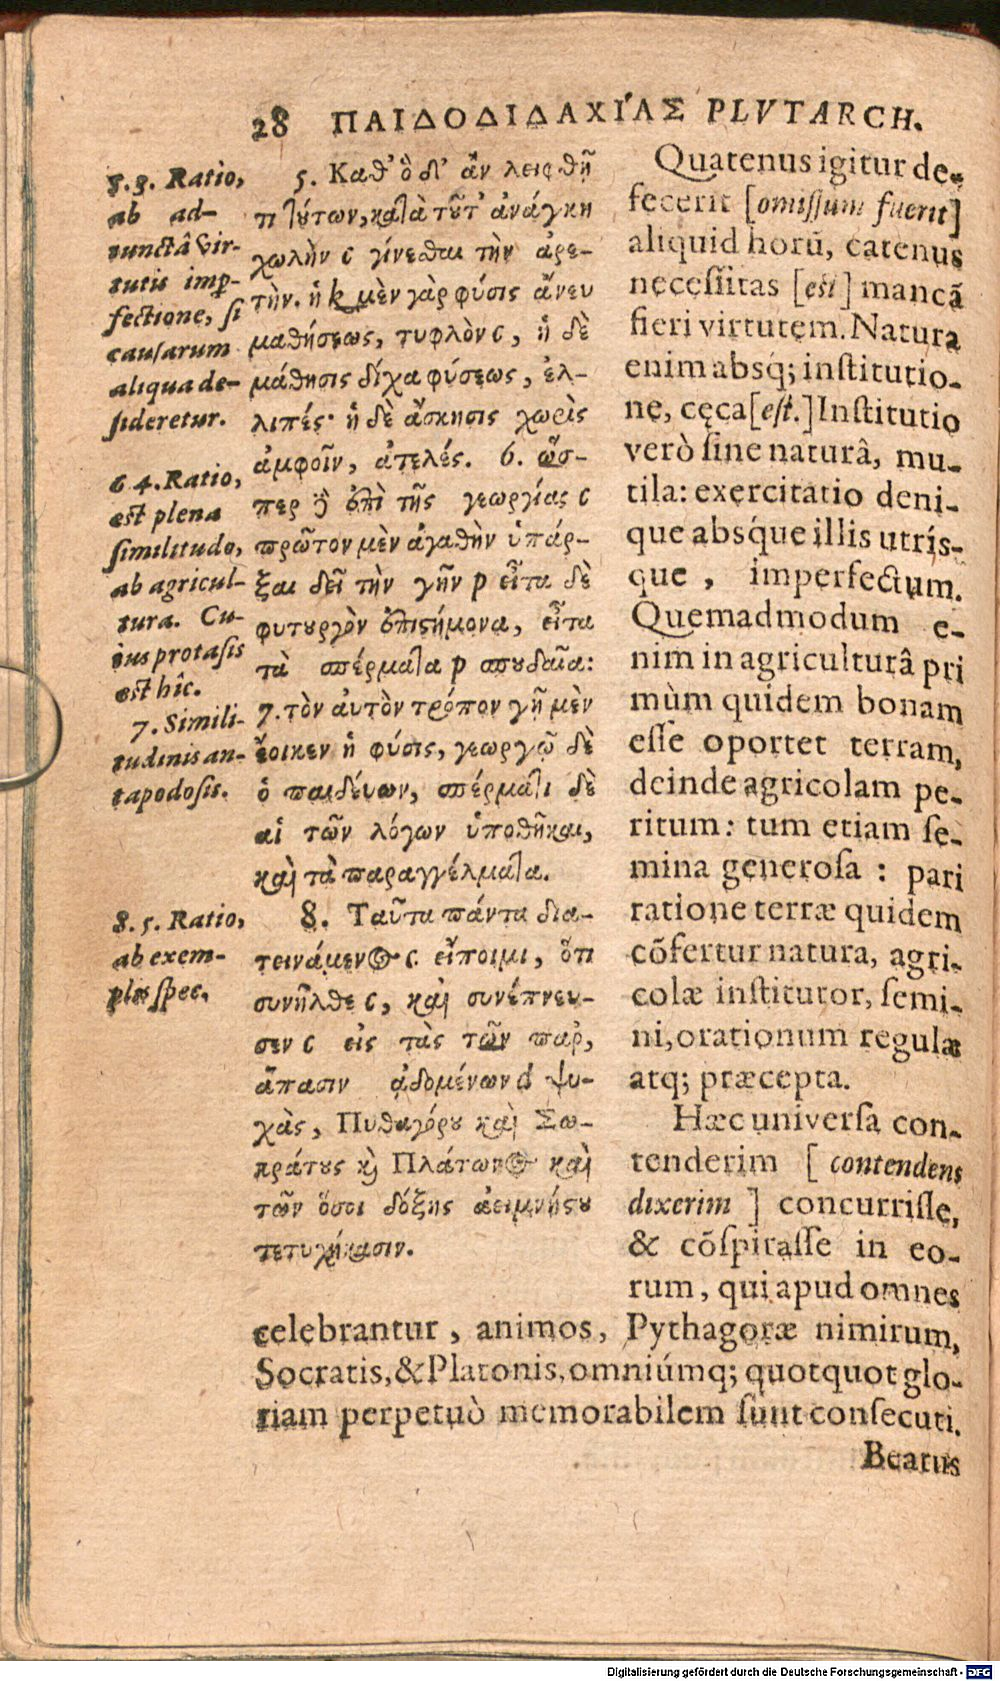 28 ΠΑΙΔΟΔΙΔΑΧΙ´ΑΣ PLVTARCH.
5. 3. Ratio,
ab ad-
iunctâ vir-
tutis imp̱-
fectione, si
causarum
aliqua de-
sideretur.
6 4. Ratio,
est plena
similitudo,
ab agricul-
tura. Cu-
ius protasis
est hîc.
7. Simili-
tudinis an-
tapodosis.
8. 5. Ratio,
ab exem-
plis spec.
5. Καθ' ὃ δ' ἂν λειφθῇ
τι τούτων, κατὰ τοῦτ' ἀνάγκη
χωλὴν c γίνεσθαι τὴν ἀρε-
τὴν. ἡ k μὲν γὰρ φύσις ἄνευ
μαθήσεως, τυφλὸν c, ἡ δὲ
μάθησις δίχα φύσεως, ἐλ-
λιπές· ἡ δὲ ἄσκησις χωρὶς
ἀμφοῖν, ἀτελές. 6. ὥσ-
περ ἢ ἐπὶ τῆς γεωργίας c
πρῶτον μὲν ἀγαθὴν ὑπάρ-
ξαι δεῖ τὴν γῆν p εἶτα δὲ
φυτουργὸν ἐπιστήμονα, εἶτα
τὰ σπέρματα p σπουδαῖα:
7. τὸν αὐτὸν τρόπον γῇ μὲν
ἔοικεν ἡ φύσις, γεωργῷ δὲ
ὁ παιδεύων, σπέρματι δὲ
αἱ τῶν λόγων ὑποθῆκαι,
καὶ τὰ παραγγέλματα.
8. Ταῦτα πάντα δια-
τεινάμενος c. εἴποιμι, ὅτι
συνῆλθε c, καὶ συνέπνευ-
σεν c εἰς τὰς τῶν παρ'
ἅπασιν ᾀδομένων d ψυ-
χὰς, Πυθαγόρου καὶ Σω-
κράτους καὶ Πλάτωνος καὶ
τῶν ὅσοι δόξης ἀειμνήστου
τετυχήκασιν.
Quatenus igitur de-
fecerit [omissum fuerit]
aliquid horū, eatenus
necessitas [est] mancā
fieri virtutem. Natura
enim absq; institutio-
ne, cęca [est.] Institutio
verò sine naturâ, mu-
tila: exercitatio deni-
que absq́ue illis utrís-
que, imperfectum.
Quemadmodum e-
nim in agriculturâ pri
mùm quidem bonam
esse oportet terram,
deinde agricolam pe-
ritum: tum etiam se-
mina generosa: pari
ratione terræ quidem
cōfertur natura, agri-
colæ institutor, semi-
ni, orationum regulæ
atq; præcepta.
Hæc universa con-
tenderim [contendens
dixerim] concurrisse,
& cōspirasse in eo-
rum, qui apud omnes
celebrantur, animos, Pythagoræ nimirum,
Socratis, & Platonis, omniúmq; quotquot glo-
riam perpetuò memorabilem sunt consecuti.
Beatus
Digitalisierung gefördert durch die Deutsche Forschungsgemeinschaft - DFG